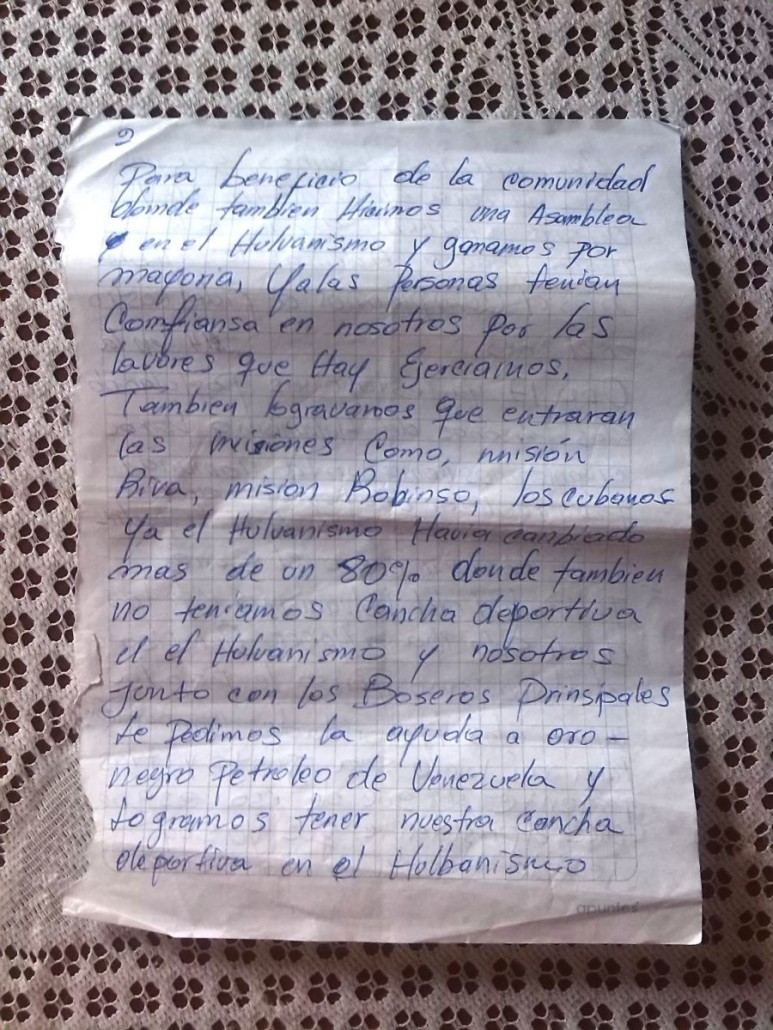 2
Para beneficio de la comunidad
donde tambien Hicimos una Asamblea
en el Hulvanismo y ganamos por
mayoria, Ya las Personas tenian
Comfiansa en nosotros por las
lavores que Hay Ejerciamos,
Tambien logravamos que entraran
las misiones Como, misión
Riva, mision Robinso, los cubanos
Ya el Hulvanismo Havia canbiado
mas de un 80% donde tambien
no teniamos Cancha deportiva
el el Hulvanismo y nosotros
Junto con los Boseros Prinsipales
le Pedimos la ayuda a oro-
negro Petroleo de Venezuela y
logramos tener nuestra Cancha
deportiva en el Hulbanismo
apuntes